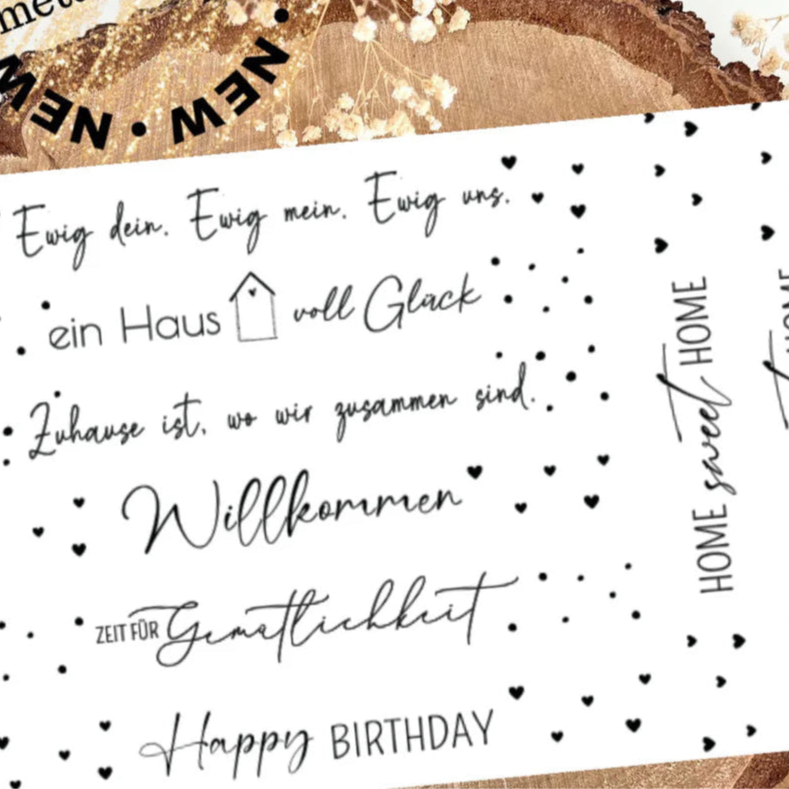 NEW • NEW •
Ewig dein. Ewig mein. Ewig uns.
ein Haus voll Glück
Zuhause ist, wo wir zusammen sind.
Willkommen
ZEIT FÜR Gemütlichkeit
Happy BIRTHDAY
HOME sweet HOME